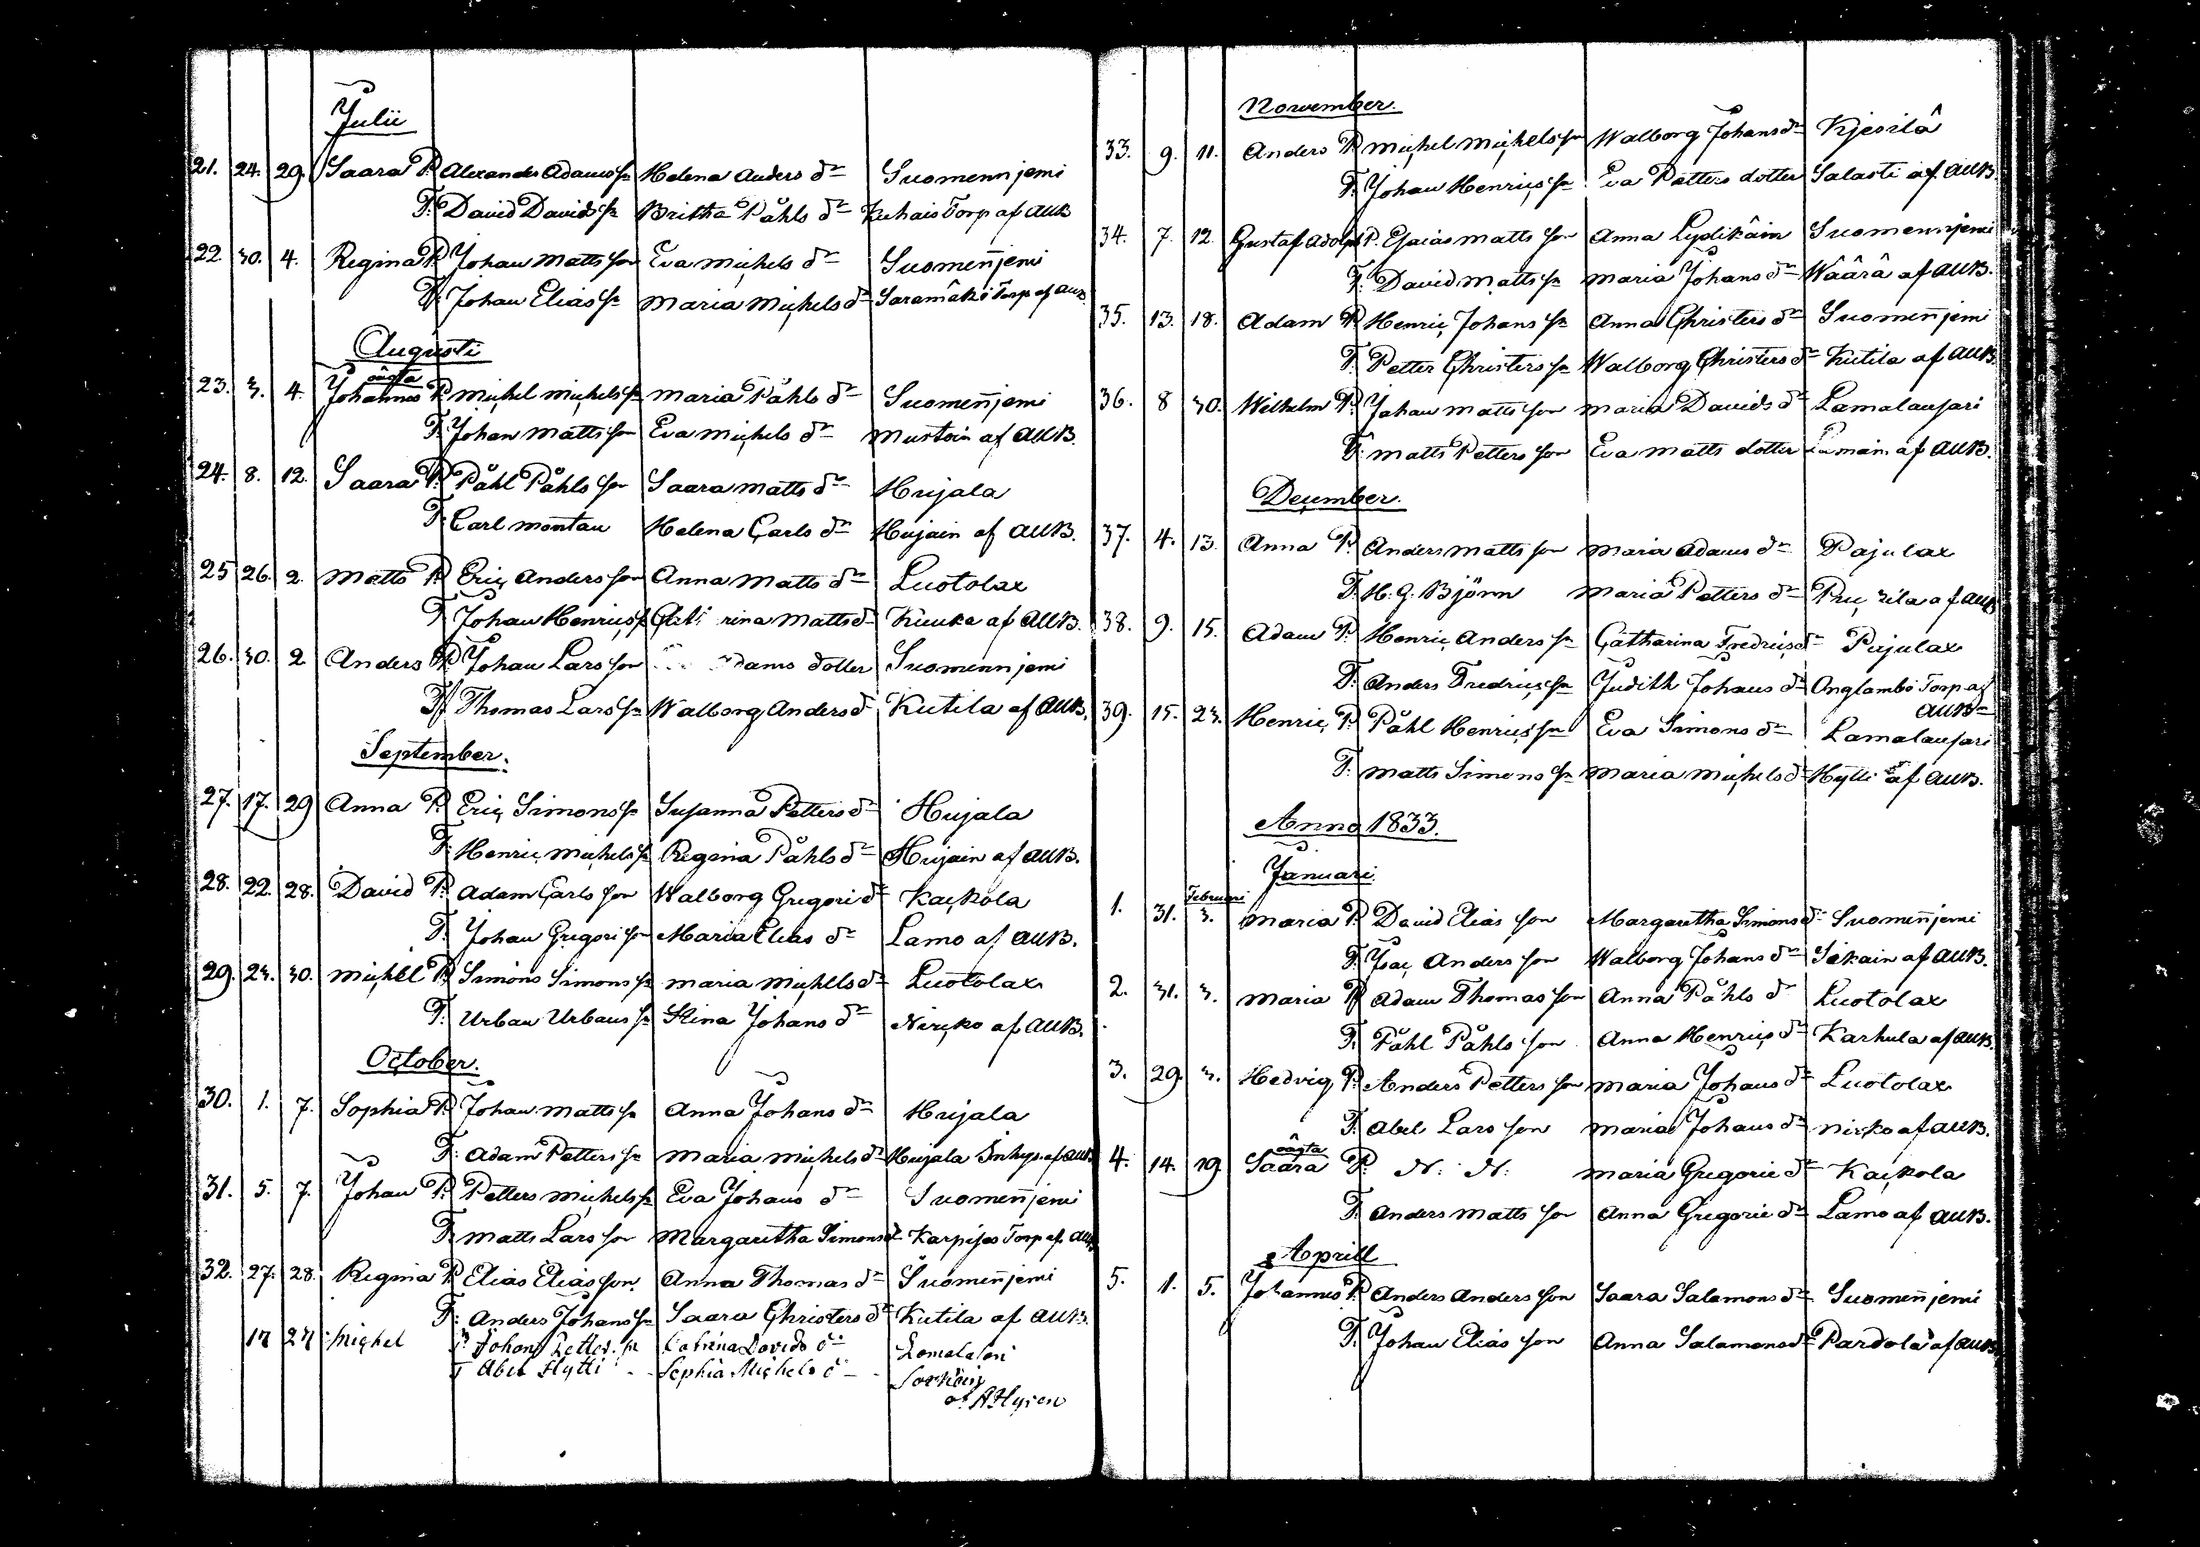 Julii
21. 24. 29. Saara P. Alexander Adams sn Helena Anders dr Suomennjemi
F. David Davids sn Britha Påhls dr Kuhais Torp af AUB
22. 30. 4. Regina P. Johan Matts son Eva Michels dr Suomenn̄jemi
F. Johan Elias sn Maria Michels dr Saramäki Torp af AUB
Augusti
oägta
23. 3. 4. Johannes P. Michel Michels sn Maria Påhls dr Suomen̄jemi
F. Johan Matts son Eva Michels dr Mustoin af AUB.
24. 8. 12. Saara P. Påhl Påhls son Saara Matts dr Hujala
F. Carl Montau Helena Carls dr Hujain af AUB.
25 26. 2. Matts P. Eric Anders son Anna Matts dr Luotolax
F. Johan Henrics sn rina Matts dr Kiuka af AUB.
26. 30. 2 Anders P. Johan Lars son dams dotter Suomennjemi
F. Thomas Lars sn Walborg Anders d Kutila af AUB.
September.
27. 17. 29 Anna P. Eric Simons sn Susanna Petters dr Hujala
F. Henric Michels sn Regina Påhls dr Hujain af AUB.
28. 22. 28. David P. Adam Carls son Walborg Gregori dr Kackola
F. Johan Gregori son Maria Elias dr Lamo af AUB.
29. 23. 30. Michel P. Simons Simons sn Maria Michels dr Luotolax
F. Urban Urbans sn Stina Johans dr Nircko af AUB.
October.
30. 1. 7. Sophia P. Johan Matts sn Anna Johans dr Hujala
F. Adam Petters sn Maria Michels dr Hujala Inhys. af AUB
31. 5. 7. Johan P. Petters Michels sn Eva Johans dr Suomen̄jemi
F. Matts Lars son Margaretha Simons d Karpijos Torp af AUB
32. 27. 28. Regina P. Elias Elias son Anna Thomas dr Suomen̄jemi
F. Anders Johans sn Saara Christers dr Kutila af AUB.
17 27 Michel P. Johan Petter. sn Catrina Davids dr Lomalasori
F Abel Hytti Sophia Michels dr
af A Hyren
November.
33. 9. 11. Anders P. Michel Michels son Walborg Johans dr Kjesilä
F. Johan Henrics sn Eva Petters dotter Salasti af AUB.
34. 7. 12. Gustaf Adolph P. Esaias Matts son Anna Lydikäin Suomennjemi
F. David Matts sn Maria Johans dr Wäärä af AUB.
35. 13. 18. Adam P. Henric Johans sn Anna Christers dr Suomen̄jemi
F. Petter Christers sn Walborg Christers dr Kutila af AUB.
36. 8 30. Wilhelm P. Johan Matts son Maria Davids dr Lamalausari
F. Matts Petters son Eva Matts dotter af AUB.
December.
37. 4. 13. Anna P. Anders Matts son Maria Adams dr Pajulax
F. H. G. Björn Maria Petters dr af AUB
38. 9. 15. Adam P. Henric Anders sn Catharina Fredrics d Pajulax
F. Anders Fredrics sn Judith Johans dr Onglambi Torp af
AUB
39. 15. 23. Henric P. Påhl Henrics sn Eva Simons dr Lamalausari
F. Matts Simons sn Maria Michels d Hytti af AUB.
Anno 1833.
Januari
Februari
1. 31. 3. Maria P. David Elias son Margaretha Simons d Suomen̄jemi
F. Isac Anders son Walborg Johans dr Sikain af AUB.
2. 31. 3. Maria P. Adam Thomas son Anna Påhls dr Luotolax
F. Påhl Påhls son Anna Henrics dr Karhula af AUB.
3. 29 3. Hedvig P. Anders Petters son Maria Johans dr Luotolax
F. Abel Lars son Maria Johans dr Nirko af AUB.
oägta
4. 14. 19 Saara P. N. N. Maria Gregorie dr Kackola
F. Anders Matts son Anna Gregorie dr Lamo af AUB.
Aprill
5. 1. 5. Johannes P. Anders Anders son Saara Salamons dr Suomen̄jemi
F. Johan Elias son Anna Salamons dr Pardola af AUB.